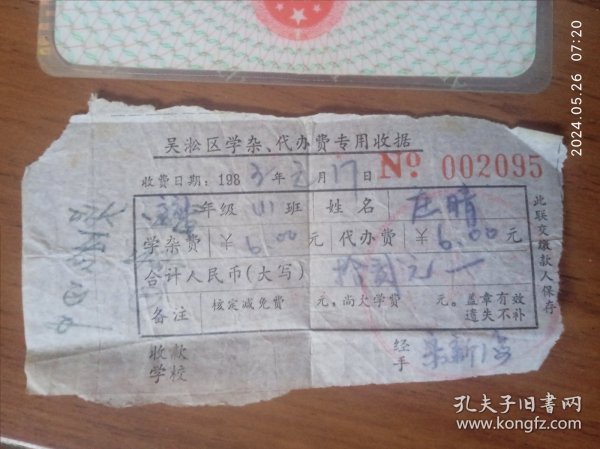 吴淞区学杂、代办费专用收据
收费日期：198 3 年 元 月 17 日 № 002095
年级 班 姓名 庄晴
学杂费 ￥ 6.00 元 代办费 ￥ 6.00 元
合计人民币(大写) 拾贰元
备注 核定减免费 元。尚欠学费 元。盖章有效
遗失不补
收款
学校
经
手
此联交缴款人保存
2024.05.26 07:20
孔夫子旧书网
www.kongfz.com